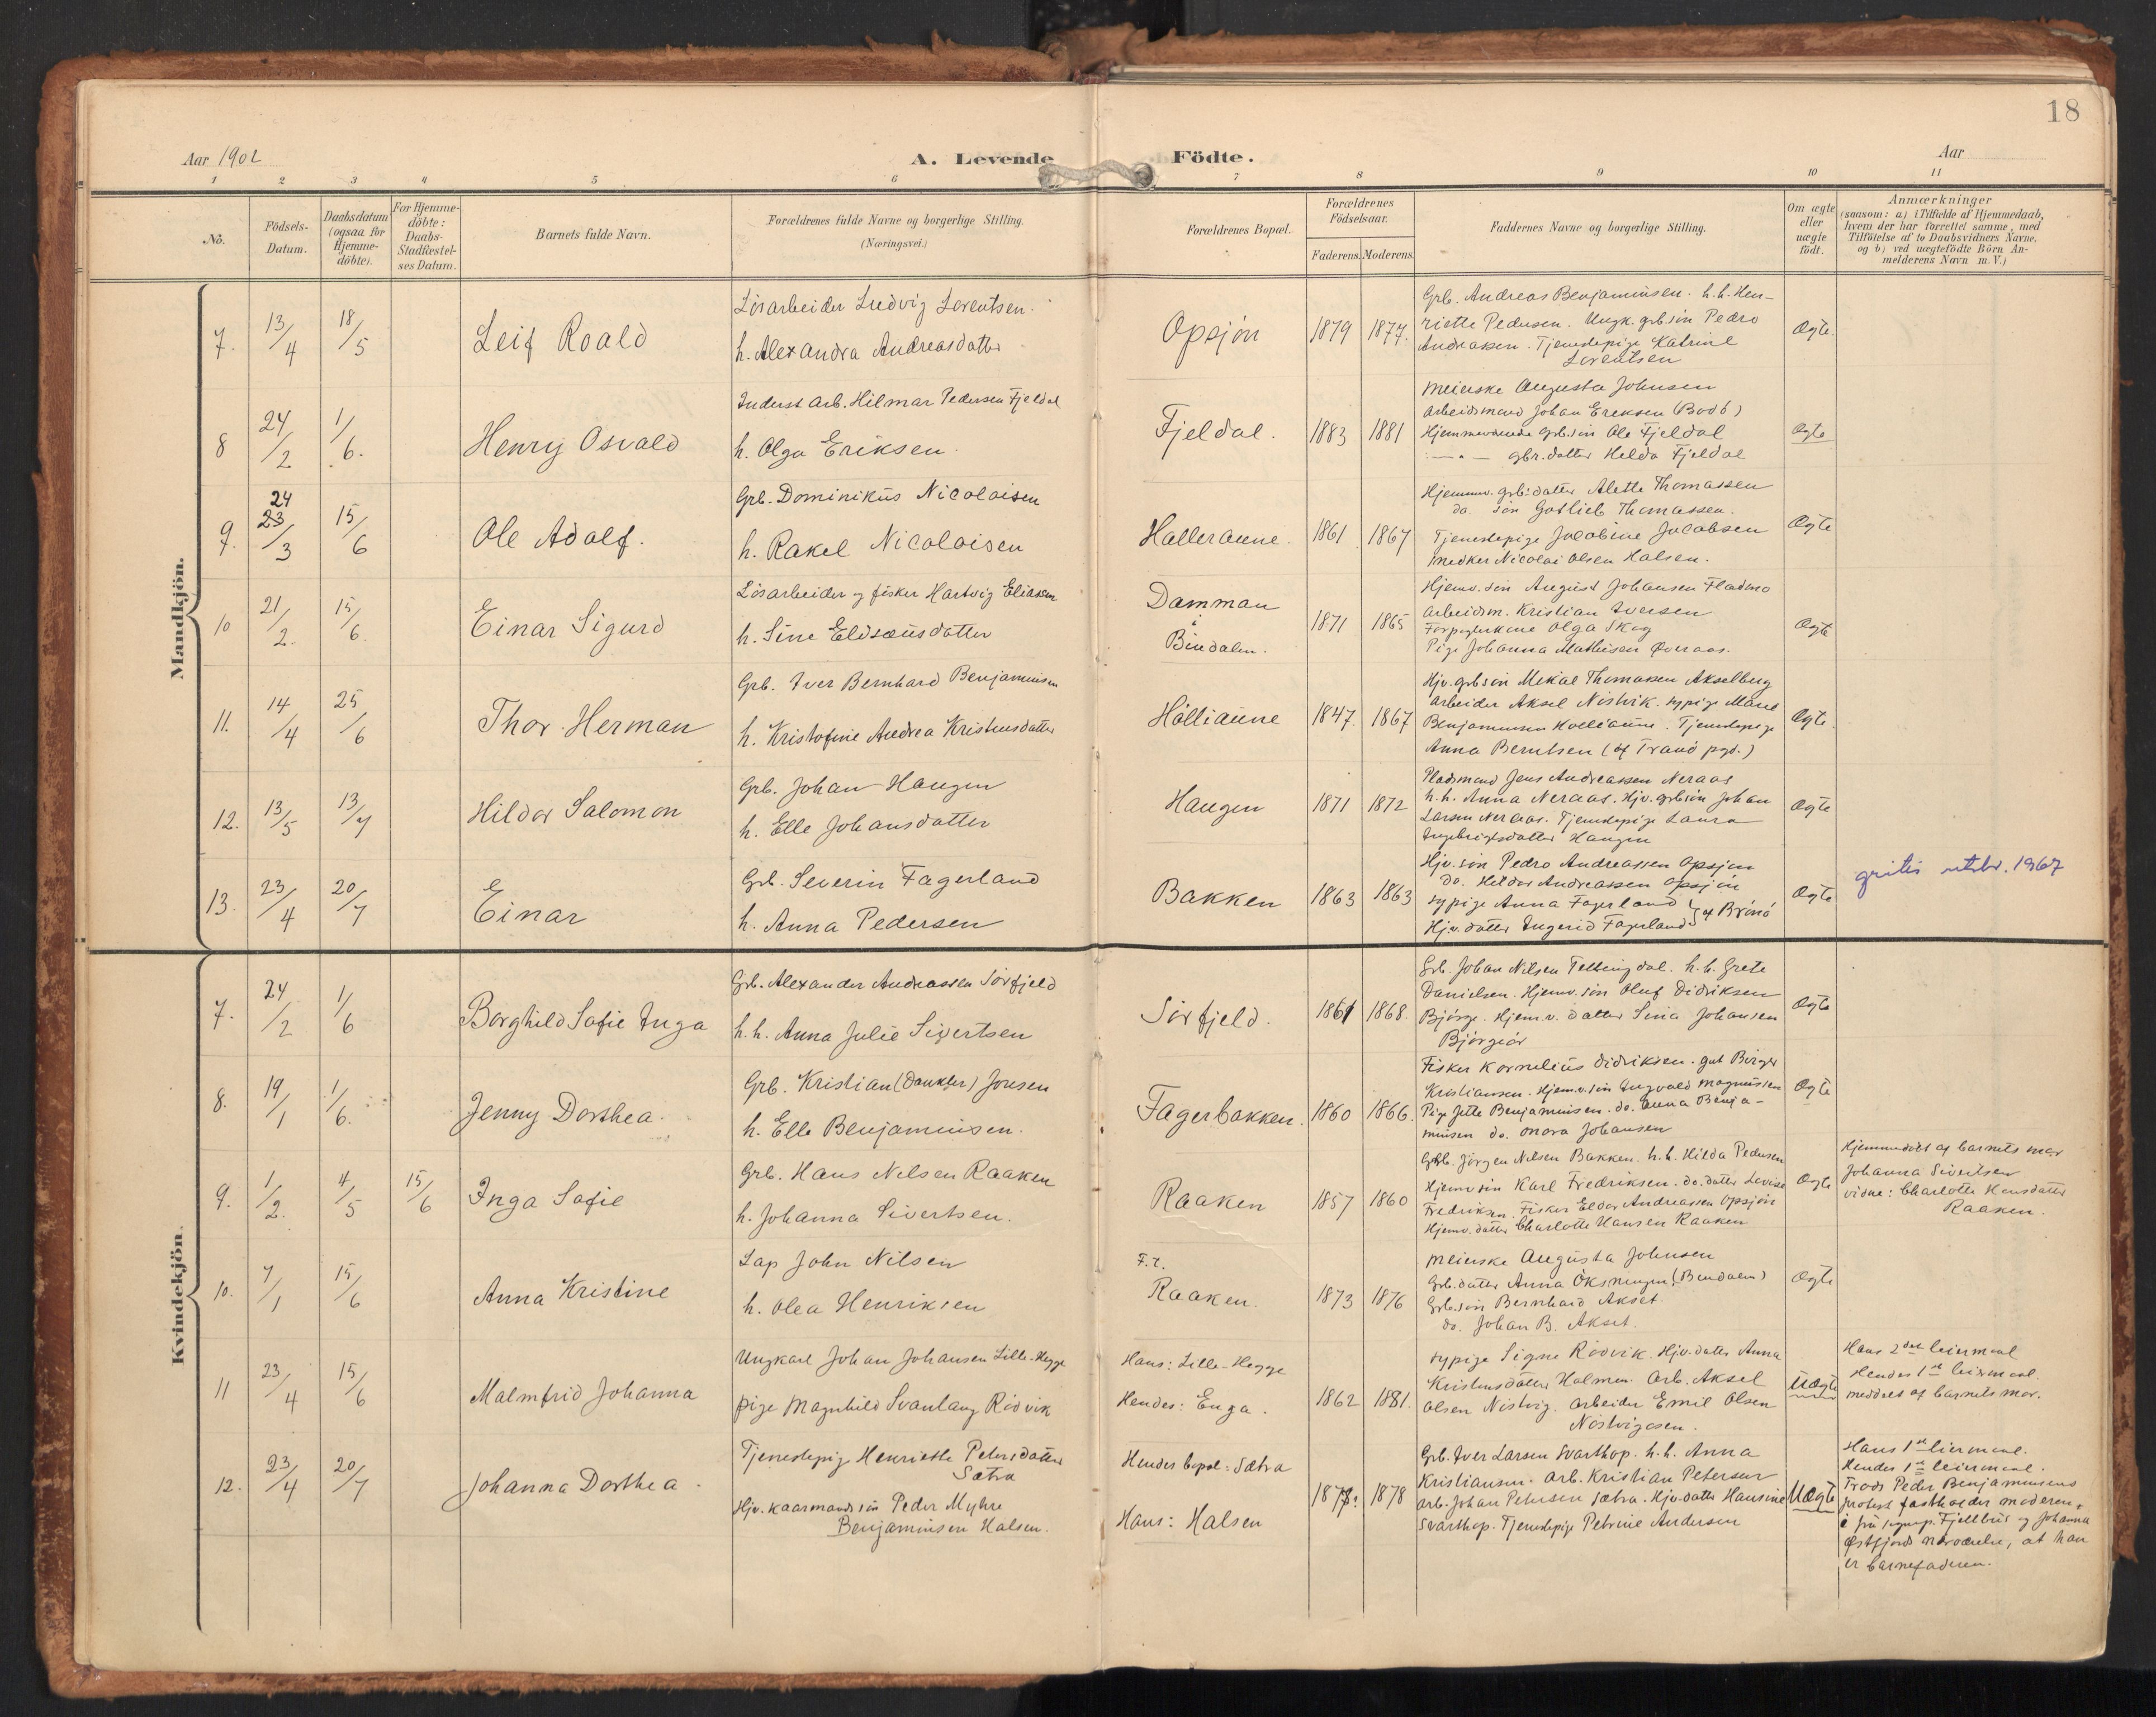 18
Aar 1902
A. Levende Födte.
Aar
1 2 3 4 5 6 7 8 9 10 11
No.
Födsels-Datum.
Daabsdatum (ogsaa for Hjemme-döbte).
For Hjemme-döbte: Daabs-Stadfæstel-ses Datum.
Barnets fulde Navn.
Forældrenes fulde Navne og borgerlige Stilling.
(Næringsvei.)
Forældrenes Bopæl.
Forældrenes Födselsaar.
Faderens. Moderens.
Faddernes Navne og borgerlige Stilling.
Om ægte eller uægte födt.
Anmærkninger
(saasom: a) i Tilfælde af Hjemmedaab,
hvem der har forrettet samme, med
Tilföielse af to Daabsvidners Navne,
og b) ved uægtefödte Börn An-
melderens Navn m. V.)
Mandkjön.
7. 13/4 18/5 Leif Roald
Lösarbeider Ludvig Lorentsen.
h. Alexandra Andreasdatter
Opsjön 1879 1877.
Grb. Andreas Benjaminsen. h. h. Hen-
riette Pedersen. Ungk. grb.sön Pedro
Andreasen. Tjenestepige Katrine
Lorentsen
Ægte.
8 24/2 1/6. Henry Osvald
Inderst arb. Hilmar Pedersen Fjeldal
h. Olga Eriksen.
Fjeldal. 1883 1881
Meierske Augusta Johnsen
Arbeidsmand Johan Ereksen (Bodö)
Hjemmeværende Grb.sön Ole Fjeldal
— " — gbr.datter Helda Fjeldal
Ægte
9. 24 23/3 15/6 Ole Adolf.
Grb. Dominikus Nicolaisen
h. Rakel Nicolaisen
Halleraune. 1861 1867
Hjemmv. grb.datter Alette Thomassen
do. sön Gotlieb Thomassen.
Tjenestepige Jacobine Jacobsen
Snedker Nicolai Olsen Halsen.
Ægte
10 21/2. 15/6. Einar Sigurd
Lösarbeider og fisker Hartvig Eliasen
h. Sine Elisæusdatter
Damman
i
Bindalen.
1871 1865
Hjemv. sön August Johansen Fladmo
Arbeidsm. Kristian Iversen
Forpagterkone Olga Skog
Pige Johanna Mathisen Øveraas.
Ægte
11. 14/4 25/6 Thor Herman
Grb. Iver Bernhard Benjaminsen
h. Kristofine Andrea Kristensdatter
Hölliaune 1847. 1867
Hjv. grb.sön Mekal Thomasen Akselberg
Arbeider Aksel Nistvik. Sypige
Benjaminsen Holliaune. Tjenestepige
Anna Berntsen (af Tranö pgd.)
Ægte.
12. 13/5 13/7 Hildor Salomon
Grb. Johan Haugen
h. Elle Johansdatter
Haugen 1871 1872
Pladsmand Jens Andreassen Neraas
h. h. Anna Neraas. Hjv. grb.sön Johan
Larsen Neraas. Tjenestepige Laura
Ingebrigtsdatter Haugen
Ægte
13. 23/4 20/7 Einar
Grb. Severin Fagerland
h. Anna Pedersen
Bakken 1863 1863
Hjv. sön Pedro Andreassen Opsjön
Do. Heldor Andreassen Opsjön
Sypige Anna Fagerland } af Brönö
Hjv. datter Ingerid Fagerland
Ægte
gratis utskr. 1967
Kvindekjön.
7. 24/2 1/6 Borghild Sofie Inga
Grb. Alexander Andreassen Sörfjeld
h. h. Anna Julie Sivertsen
Sörfjeld. 1861 1868.
Grb. Johan Nilsen Tettingdal. h. h. Grete
Danielsen. Hjemv. sön Oluf Didriksen
Björge. Hjem.v. datter Sina Johansen
Björgiör
Ægte
8. 19/1 1/6. Jenny Dorthea.
Grb. Kristian (Dankter) Jonsen
h. Elle Benjaminsen.
Fagerbakken. 1860 1866.
Fisker Kornelius Didriksen. gut Birger
Kristiansen. Hjem.v. sön Ingvald Magnussen
Pige Jette Benjaminsen. do. Anna Benja-
minsen do. Mara Johansen
Ægte
9. 1/2. 4/5 15/6 Inga Sofie
Grb. Hans Nilsen Raaken
h. Johanna Sivertsen.
Raaken 1857 1860
Grb. Jörgen Nilsen Bakken. h. h. Hilda Pedersen
Hjemv sön Karl Fredriksen. do. datter Lovise
Fredriksen. Fisker Eldor Andreassen Opsjön
Hjemv. datter Charlotte Hansen Raaken
Ægte
Hjemmedöbt af barnets mor
Johanna Sivertsen
vidne: Charlotte Hansdatter
Raaken.
10. 7/1 15/6 Anna Kristine
Lap John Nilsen
h. Olea Henriksen
F. t.
Raaken. 1873 1876
Meierske Augusta Johnsen
Grb. datter Anna Öksningen (Bindalen)
Grb.sön Bernhard Akset.
do. Johan B. Akset.
Ægte
11 23/4 15/6 Malmfrid Johanna
Ungkarl Johan Johansen Lille-Hegge
pige Magnhild Svanlaug Rödvik
Hans: Lille-Hegge
Hendes: Enga.
1862 1881.
Sypige Signe Rödvik. Hjv. datter Anna
Kristensdatter Holmen. Arb. Aksel
Olsen Nistvig. Arbeider Emil Olsen
Nöstvigosen.
Uægte
Hans 2det leiermaal
Hendes 1st leiermaal.
meddelt af barnets mor.
12. 23/4 20/7 Johanna Dorthea.
Tjenestepige Henriette Petersdatter
Sætra
Hjv. kaarmands sön Peder Myhre
Benjaminsen Halsen.
Hendes bopæl: Sætra
Hans: Halsen
1878
Grb. Iver Larsen Svarthop. h. h. Anna
Kristiansen. Arb. Kristian Petersen
Arb. Johan Petersen Sætra. Hjv. datter Hansine
Svarthop. Tjenestepige Petrine Andersen
Uægte
Hans 1st leiermaal.
Hendes 1st leiermaal.
Trods Peder Benjaminsens
protest fastholder moderen,
i sognep. Fjellbus og Johanna
Østfjords nærværelse, at han
er barnefaderen.